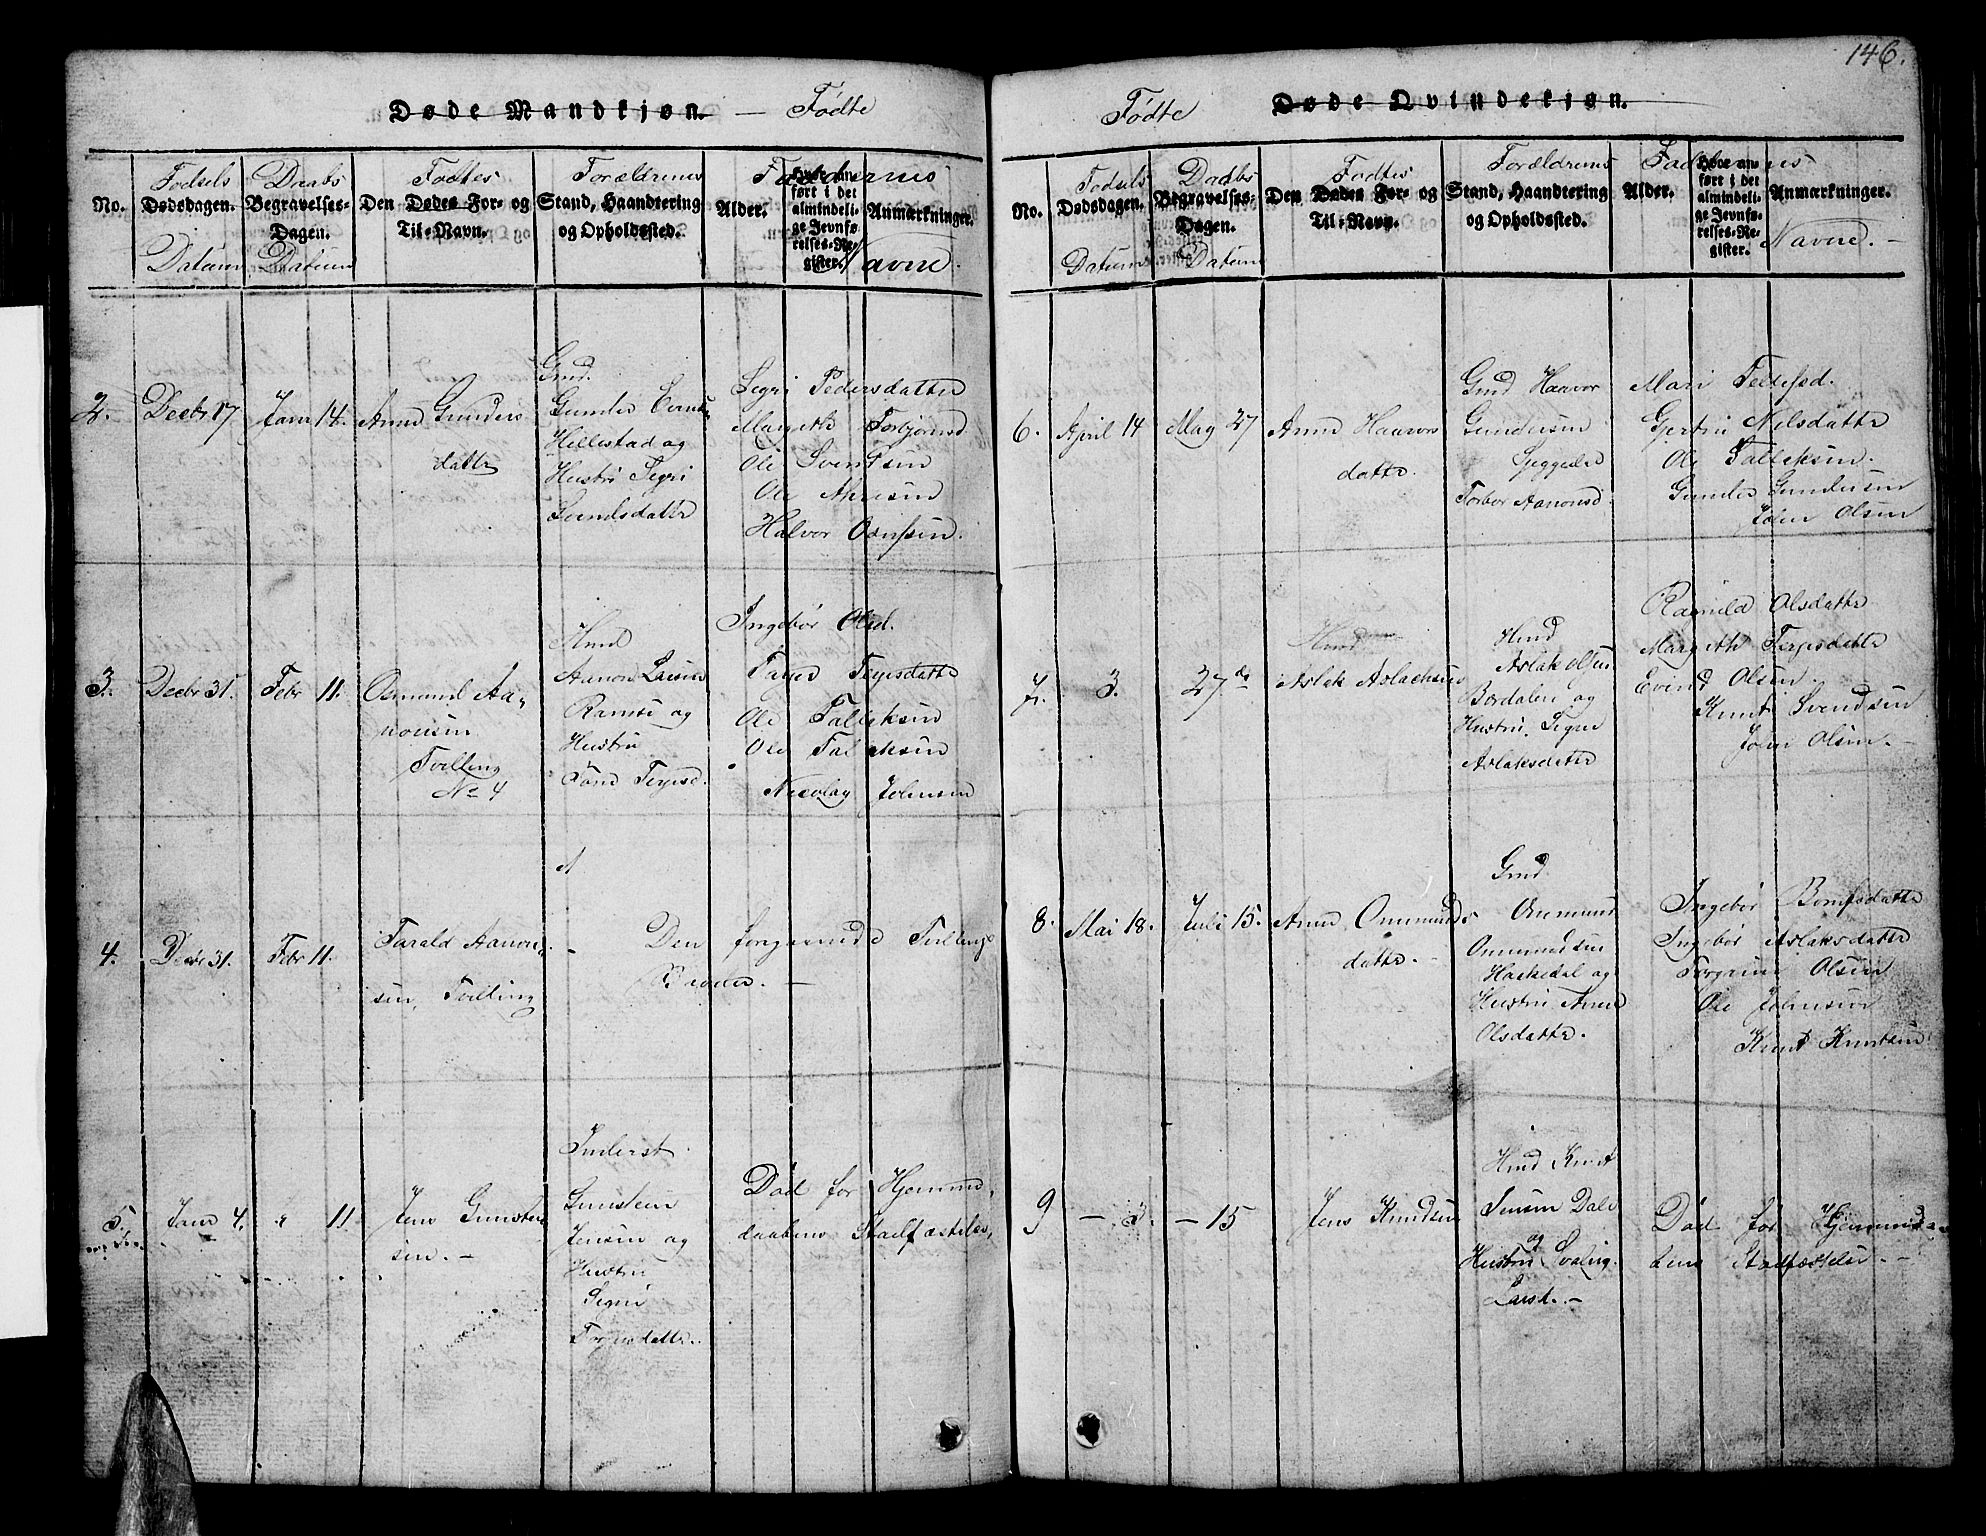 146.
Døde Mandkjøn. — Fødte
No.
Fødsels
Dødsdagen.
Datum
Daabs
Begravelses-
Dagen.
Datum
Fødtes
Den Dødes For- og
Til-Navn.
Forældrenes
Stand, Haandtering
og Opholdssted.
Faddernes
Alder.
Hvor an-
ført i det
almindeli-
ge Jevnfø-
relses-Re-
gister.
Anmærkninger.
Navne.
2.
Decbr 17
Janr 14.
Anne Gunders
datter
Gmd.
Gunder
Hellestad og
Hustru Segri
Svendsdatter
Segri Pedersdatter
Margith Torbjørnsd
Ole Svendsen
Ole
Halvor
3.
Decbr 31.
Febr 11.
Osmund Aa-
nonsen
Tvilling
No 4
Hmd
Aanon
og
Hustru
Tone Terjesd.
Ingebor Olsd.
Terjesdatter
Ole Talleksen
Ole Talleksen
Nicolay Johnsen
4.
Decbr 31.
Febr 11.
Tarald Aanon-
sen, Tvilling
Den forgaaende Tvillings
Broder. —
5.
Janr 4.
11
Jens Gunsten
sen. —
Inderst
Gunsten
Jensen og
Hustru
Segri
Torjusdatter.
Død før Hjemme
daabens Stadfæstelse,
Fødte Døde Qvindekjøn.
No.
Fødsels
Dødsdagen.
Datum
Daabs
Begravelses-
Dagen.
Datum
Fødtes
Den Dødes For- og
Til-Navn.
Forældrenes
Stand, Haandtering
og Opholdssted.
Faddernes
Alder.
Hvor an-
ført i det
almindeli-
ge Jevnfø-
relses-Re-
gister.
Anmærkninger.
Navne. —
6.
April 14
May 27
Anne Haavors
datter.
Gmd Haavor
Gundersen
Torbor Aanonsd.
Mari Tellefsd.
Gjertru Nilsdatter
Ole Talleksen.
Gunder Gundersen
John Olsen
7.
3.
27 de
Aslak Aslachsen
Hmd
Aslak Olsen
Bordalen og
Hustru. Signe
Aslaksdatter
Ragnild Olsdatter
Margith Terjesdatter
Evind Olsen.
Knut Svendsen
John Olsen. —
8.
Mai 18.
Juli 15.
Anne Ommunds
datter. —
Gmd.
Ommund
Ommundsen
Haskedal og
Hustru Anne
Olsdatter.
Ingebor
Ingebor Aslaksdatter
Torgrim Olsen
Ole Johnsen
Knut Knutsen
9
— 3.
— 15
Jens Knudsen
Hmd Knut
Jensen Dale
og
Hustru Svalug
Larsd. —
Død før Hjemmeda-
bens Stadfæstelse. —